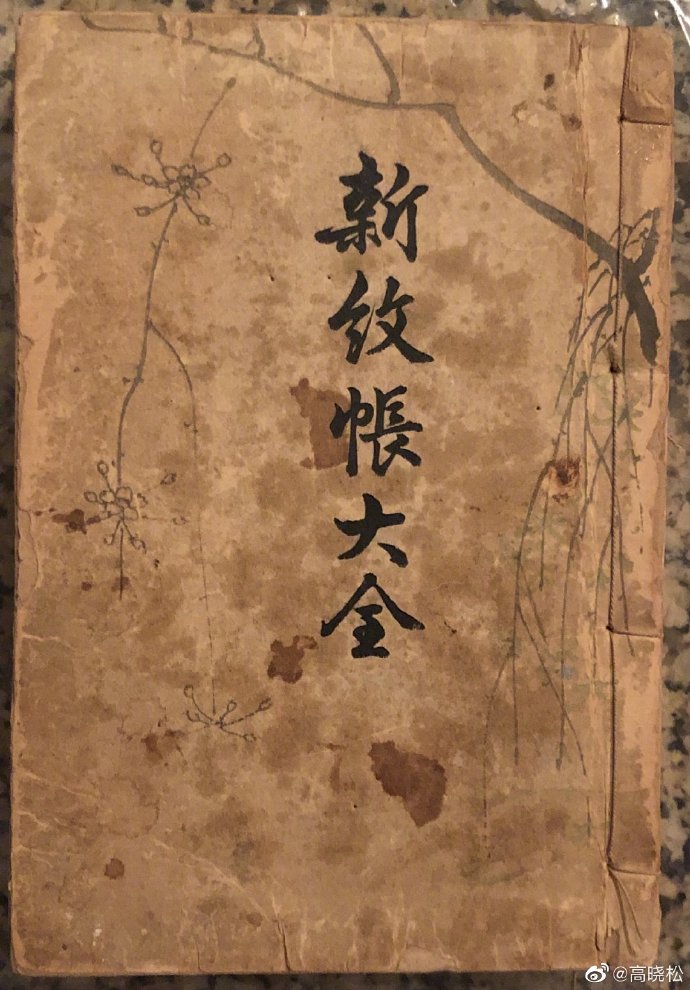 新紋帳大全
@高晓松